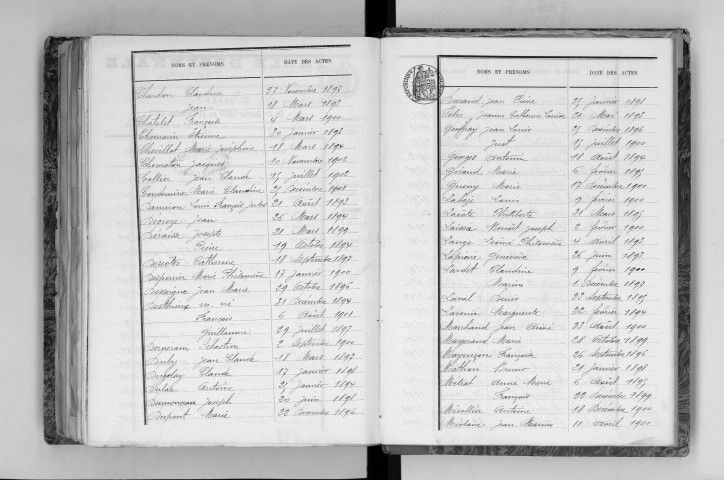 NOMS ET PRÉNOMS DATE DES ACTES
Chardon Claudine 27 Novembre 1897
Jean 18 Mars 1893
Chatelet François 4 Mars 1900
Chomarin Etienne 20 Janvier 1893
Chovillot Marie Josephine 18 Mars 1894
Chevreton Jacques 10 Novembre 1902
Collier Jean Claude 15 Juillet 1902
Condemine Marie Claudine 25 Décembre 1901
Dameron Louis François Jules 21 Août 1893
Décroze Jean 26 Mars 1894
Déraisse Joseph 21 Mars 1899
Pierre 19 Octobre 1894
Descotes Catherine 18 Septembre 1897
Desperrier Marie Philomène 17 Janvier 1900
Desseigne Jean Marie 29 Octobre 1896
Desthieux m. né 21 Décembre 1894
François 6 Août 1901
Guillaume 29 Juillet 1897
Sébastien 2 Septembre 1900
Duby Jean Claude 18 Mars 1897
Claude 17 Janvier 1898
Dulac Antoine 25 Janvier 1894
Dumonceau Joseph 20 Juin 1898
Dupont Marie 22 Décembre 1896
NOMS ET PRÉNOMS DATE DES ACTES
Durand Jean Pierre 25 Janvier 1898
Jeanne Catherine Louise 21 Mai 1895
Geoffray Jean Louis 25 Décembre 1896
Just 15 Juillet 1900
Georges Antonin 18 Août 1894
Giraud Marie 6 Février 1895
Marie 17 Décembre 1900
Louis 9 Février 1900
31 Mars 1895
Laissa Benoit Joseph 2 Février 1900
Lange Léonie Philomène 4 Avril 1893
Geneviève 26 Juin 1893
Lardet Claudine 9 Février 1900
Marius 1 Décembre 1897
Laval 23 Septembre 1895
Marguerite 22 Février 1894
Marchand Jean Aimé 23 Août 1900
Margerand Marie 28 Octobre 1899
Mayençon Françoise 26 Septembre 1896
Mathon Bruno 21 Janvier 1898
Anne Marie 6 Août 1895
François 22 Décembre 1899
Antoine 18 Décembre 1900
Jean Marius 11 Avril 1900